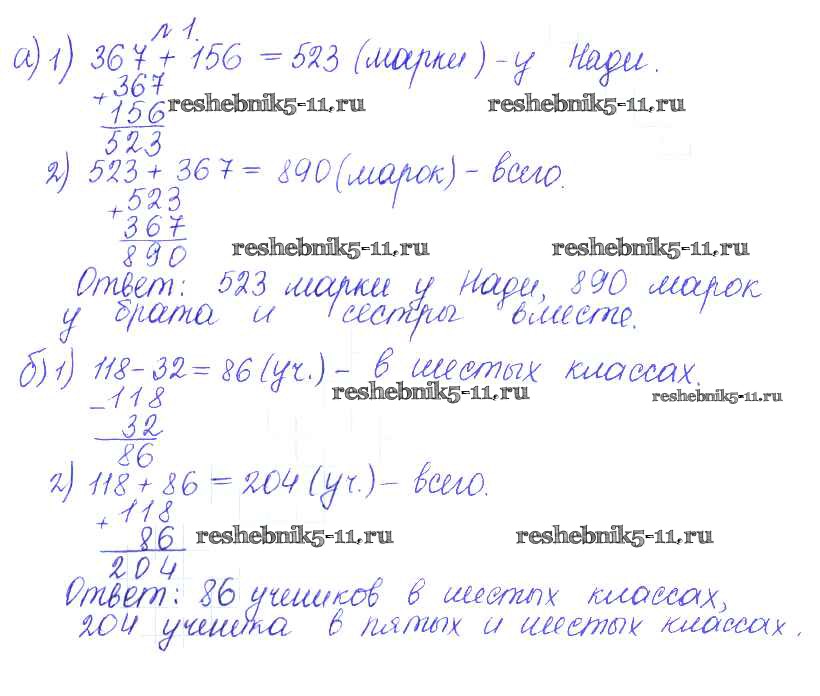 № 1.
а) 1) 367 + 156 = 523 (марки) - у Нади.
+ 367
reshebnik5-11.ru reshebnik5-11.ru
156
523
2) 523 + 367 = 890 (марок) - всего.
+ 523
367
reshebnik5-11.ru reshebnik5-11.ru
890
Ответ: 523 марки у Нади, 890 марок
у брата и сестры вместе.
б) 1) 118 - 32 = 86 (уч.) - в шестых классах.
reshebnik5-11.ru reshebnik5-11.ru
- 118
32
86
2) 118 + 86 = 204 (уч.) - всего.
+ 118
86
reshebnik5-11.ru reshebnik5-11.ru
204
Ответ: 86 учеников в шестых классах,
204 ученика в пятых и шестых классах.